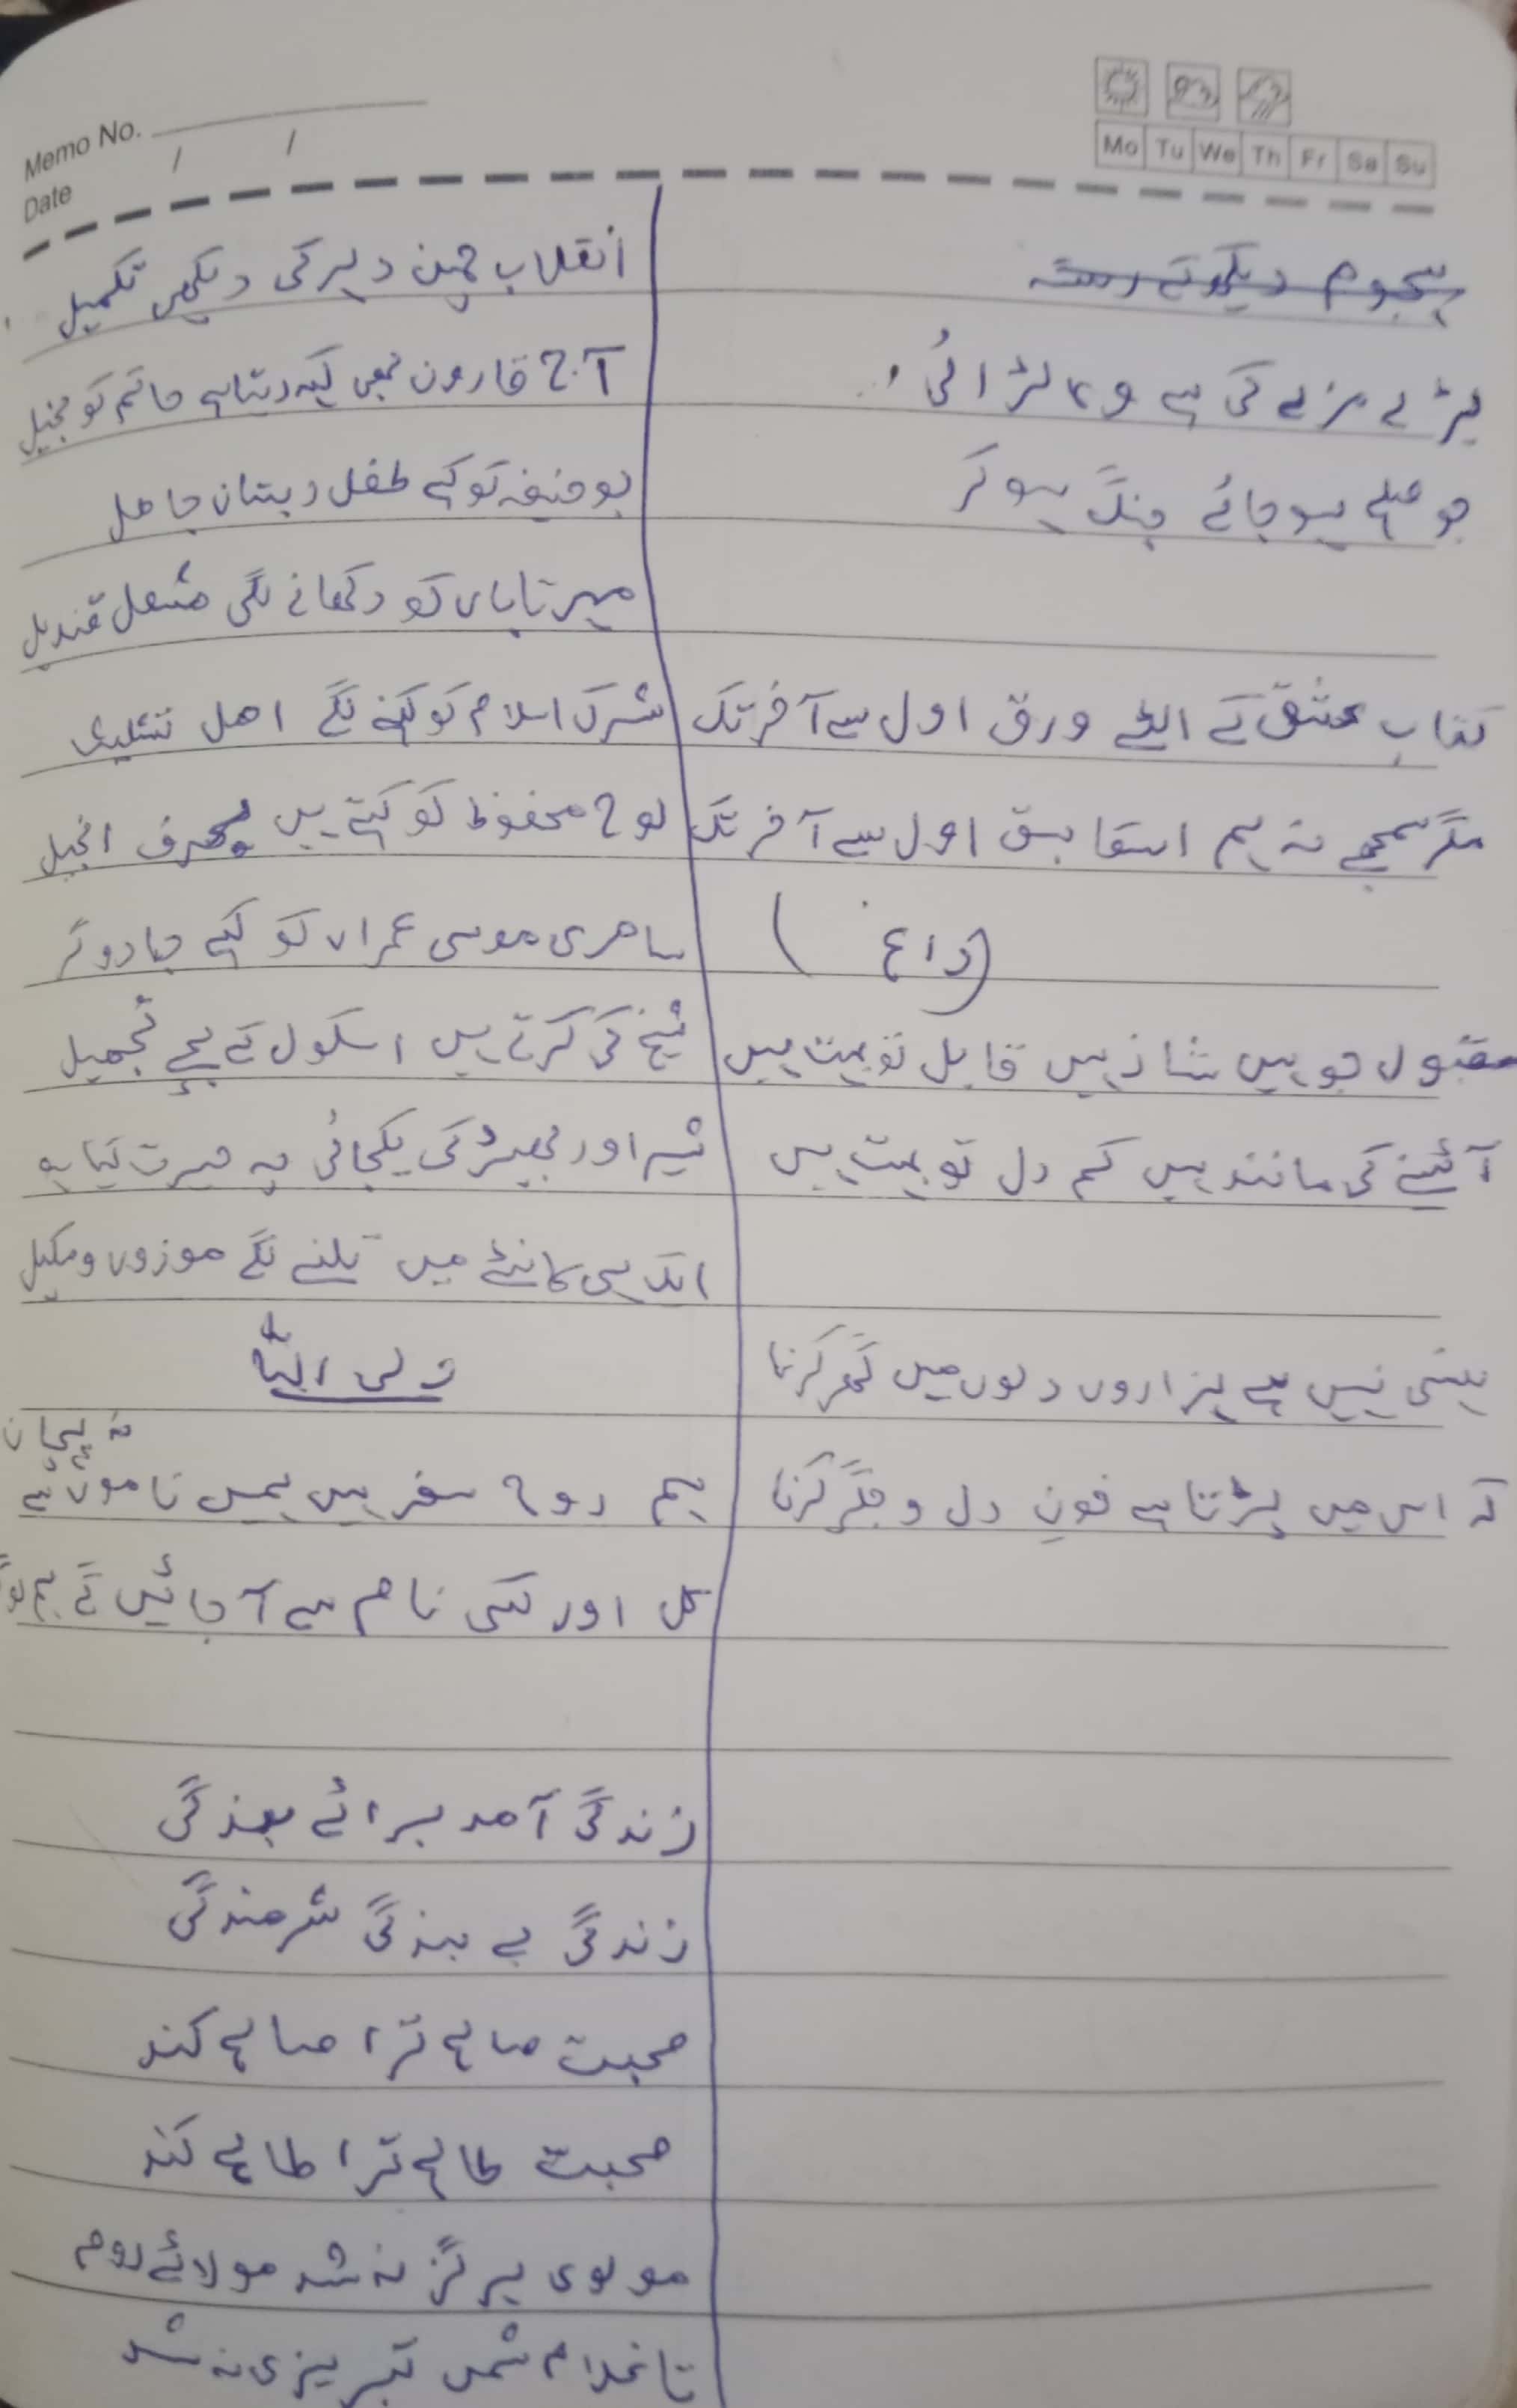 Memo No.
Date / /
Mo Tu We Th Fr Sa Su
ہجوم دیکھ کے رستہ
بڑے مزے کی ہے وہ لڑائی
جو صلح ہو جائے جنگ ہو کر
کتاب عشق کے الٹے ورق اول سے آخر تک
مگر سمجھے نہ ہم اسکا سبق اول سے آخر تک
(داغ)
مقبول جو ہیں شاذ ہیں قابل تو بہت ہیں
آئینے کی مانند ہیں کم دل تو بہت ہیں
ہنسی نہیں ہے ہزاروں دلوں میں گھر کرنا
کہ اس میں پڑتا ہے خونِ دل و جگر کرنا
انقلاب چمن دہر کی دیکھی تکمیل
آج قارون بھی کہہ دیتا ہے حاتم کو بخیل
بو حنیفہ کو کہے طفل دبستان جاہل
مہر تاباں کو دکھانے لگی مشعل قندیل
شرک اسلام کو کہنے لگے اہل تثلیث
لوح محفوظ کو کہتے ہیں محرف انجیل
سامری موسی عمراں کو کہے جادوگر
شیخ کی کرتے ہیں اسکول کے بچے تجہیل
شیر اور بھیڑ کی یکجائی پہ حیرت کیا ہے
ایک ہی کانٹے میں تلنے لگے موزوں و مکیل
ہم روح سفر ہیں ہمیں ناموں سے
نہ پہچان
کل اور کسی نام سے آ جائیں گے ہم لوگ
زندگی آمد برائے بندگی
زندگی بے بندگی شرمندگی
صحبت صالح ترا صالح کند
صحبت طالح ترا طالح کند
مولوی ہرگز نہ شد مولائے روم
تا غلام شمس تبریزی نہ شد